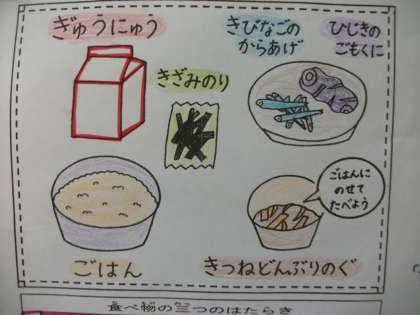 ぎゅうにゅう
きざみのり
きびなごの
からあげ
ひじきの
ごもくに
ごはんに
のせて
たべよう
ごはん
きつねどんぶりのぐ
食べ物の三つのはたらき